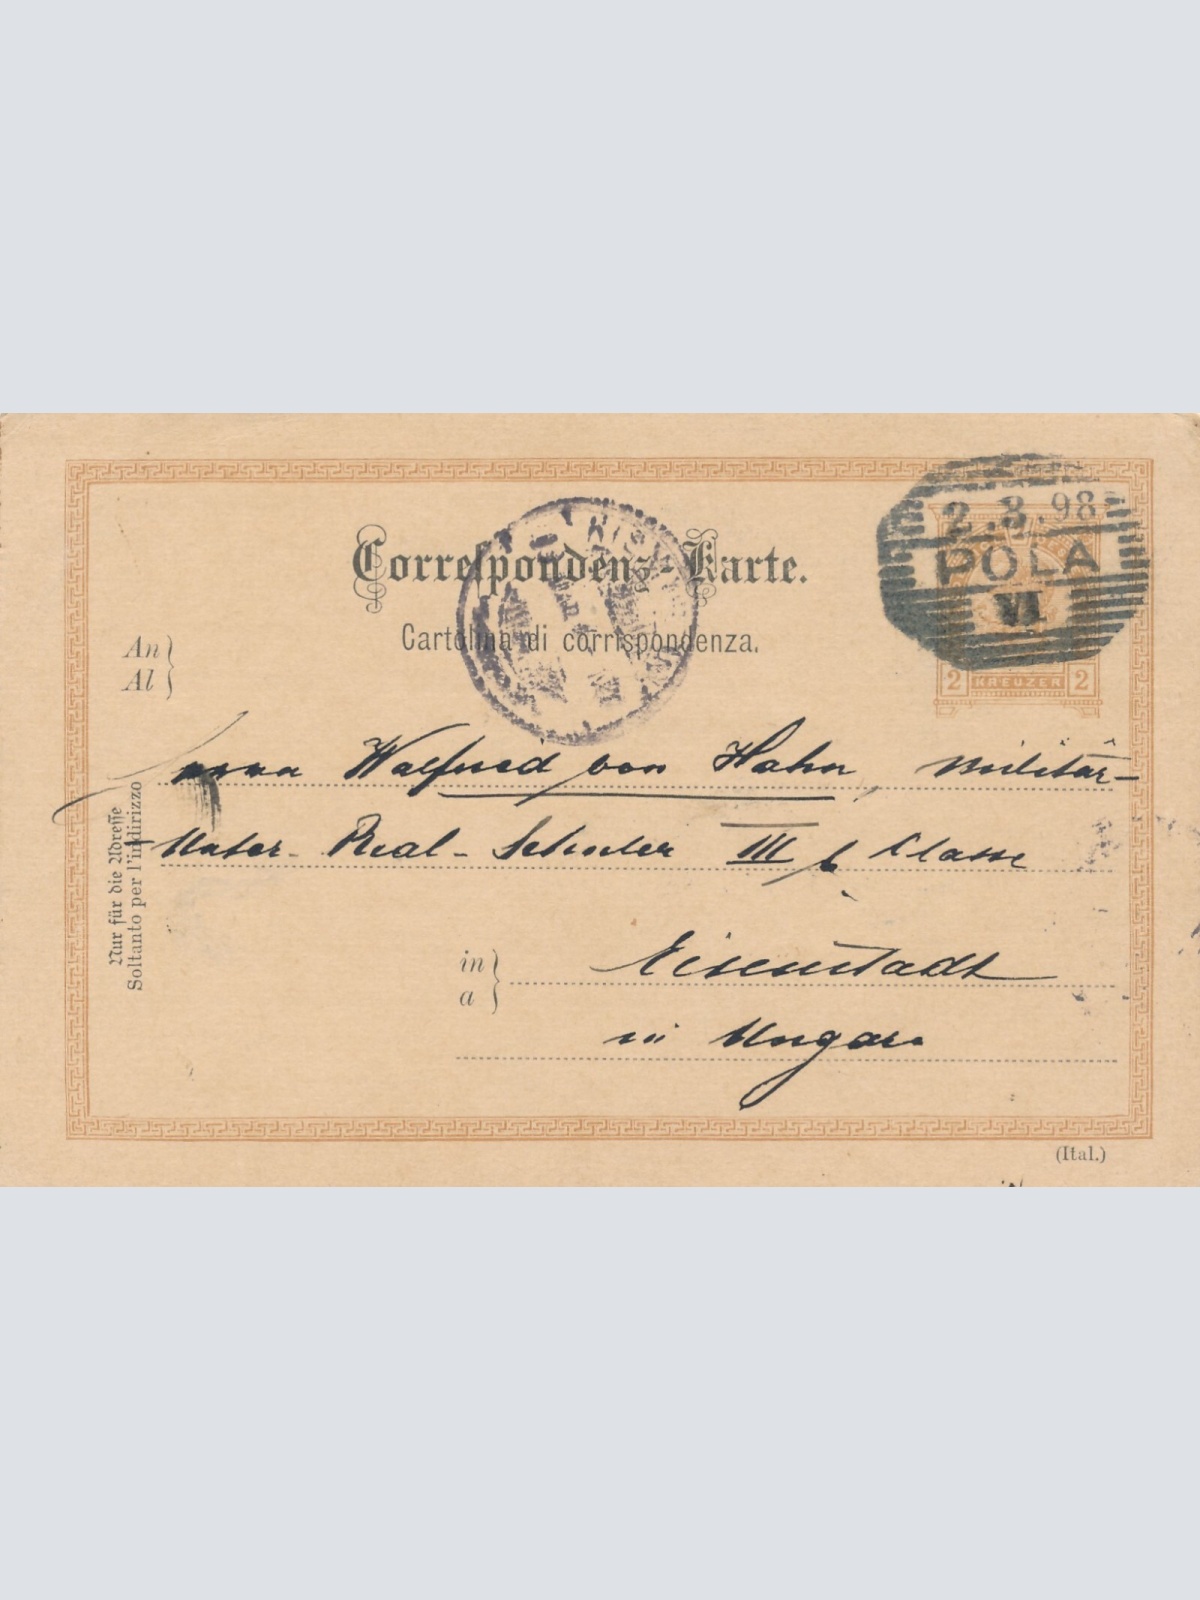 2.3.98
POLA
VI
Correspondenz-Karte.
Cartolina di corrispondenza.
2 KREUZER 2
An
Al
Herrn Walfried von Hahn, Militär-
Unter-Real-Schüler III b Classe
in
a
Eisenstadt
in Ungarn
Nur für die Adresse
Soltanto per l'indirizzo
(Ital.)